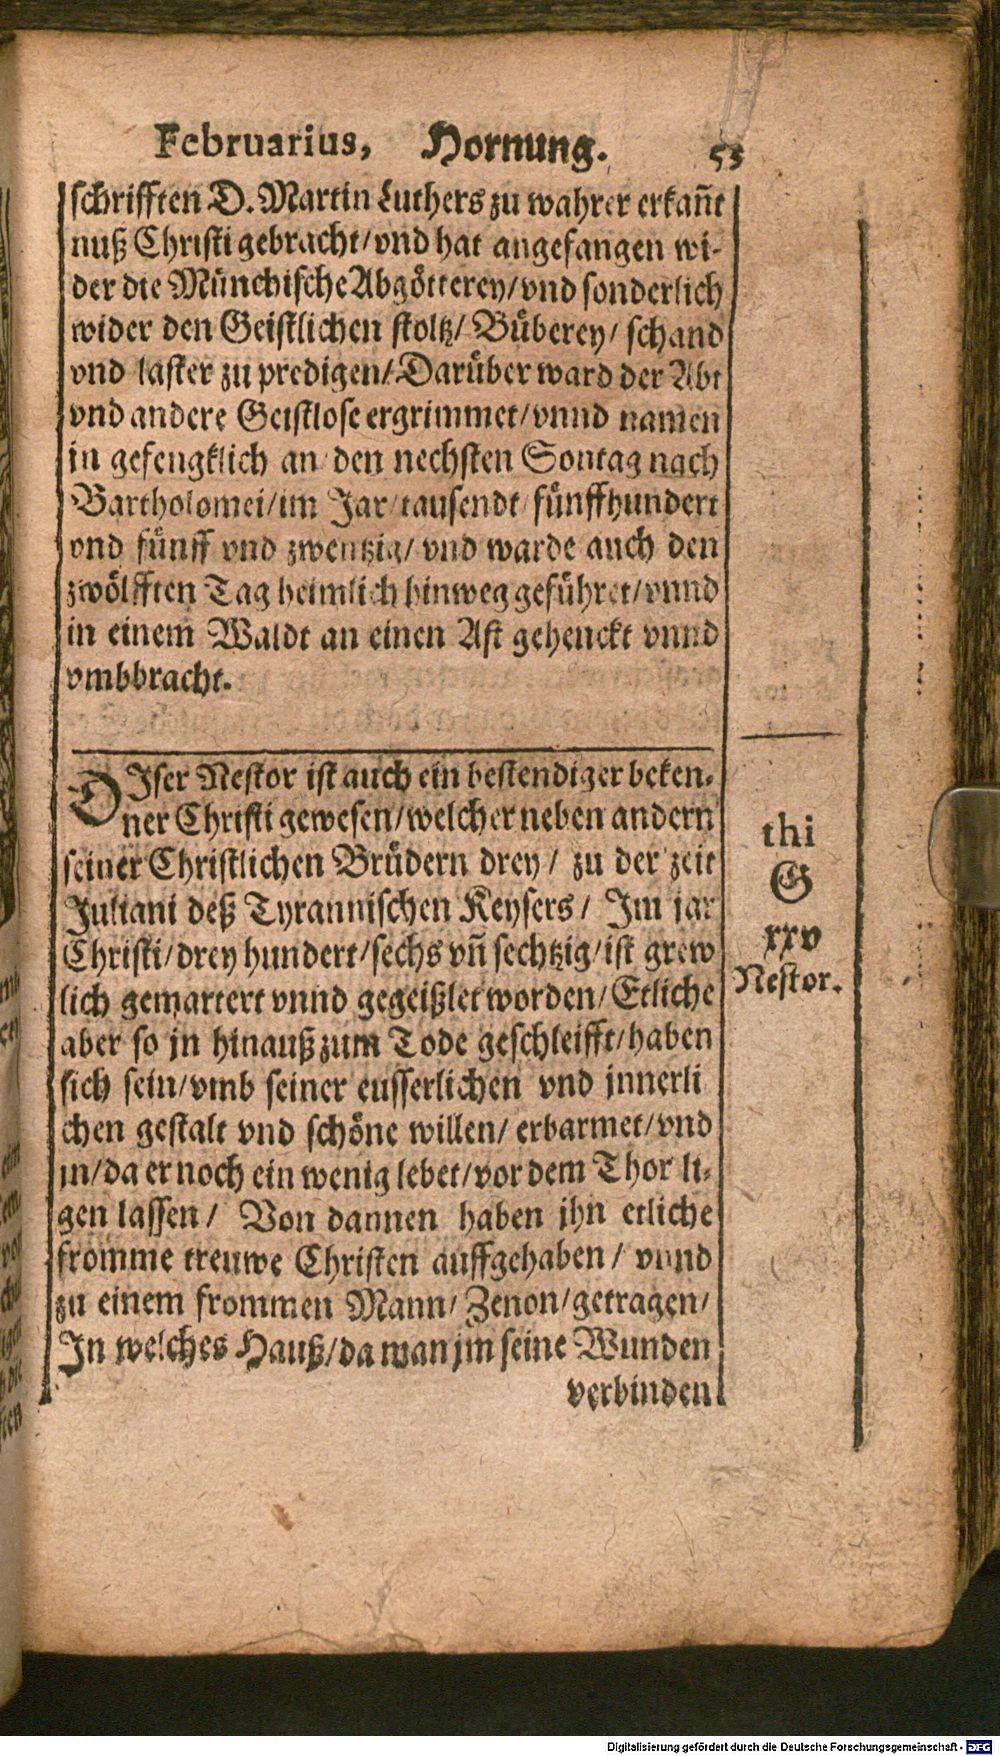 Februarius, Hornung. 55
schrifften D. Martin Luthers zu wahrer erkañt
nuß Christi gebracht/vnd hat angefangen wi-
der die Münchische Abgötterey/vnd sonderlich
wider den Geistlichen stoltz/ Büberey/ schand
vnd laster zu predigen/Darüber ward der Abt
vnd andere Geistlose ergrimmet/vnnd namen
jn gefengklich an den nechsten Sontag nach
Bartholomei/im Jar tausendt fünffhundert
vnd fünff vnd zwentzig/ vnd warde auch den
zwölfften Tag heimlich hinweg geführet/vnnd
in einem Waldt an einen Ast gehenckt vnnd
vmbbracht.
DIser Nestor ist auch ein bestendiger beken-
ner Christi gewesen/welcher neben andern
seiner Christlichen Brüdern drey/ zu der zeit
Juliani deß Tyrannischen Keysers/ Im jar
Christi/drey hundert/sechs vñ sechtzig/ist grew
lich gemartert vnnd gegeißlet worden/Etliche
aber so jn hinauß zum Tode geschleifft/haben
sich sein/vmb seiner eusserlichen vnd jnnerli
chen gestalt vnd schöne willen/ erbarmet/vnd
jn/da er noch ein wenig lebet/vor dem Thor li-
gen lassen/ Von dannen haben jhn etliche
fromme treuwe Christen auffgehaben/ vnnd
zu einem frommen Mann/ Zenon/getragen/
In welches Hauß/da man jm seine Wunden
verbinden
thi
G
xxv
Nestor.
Digitalisierung gefördert durch die Deutsche Forschungsgemeinschaft - DFG